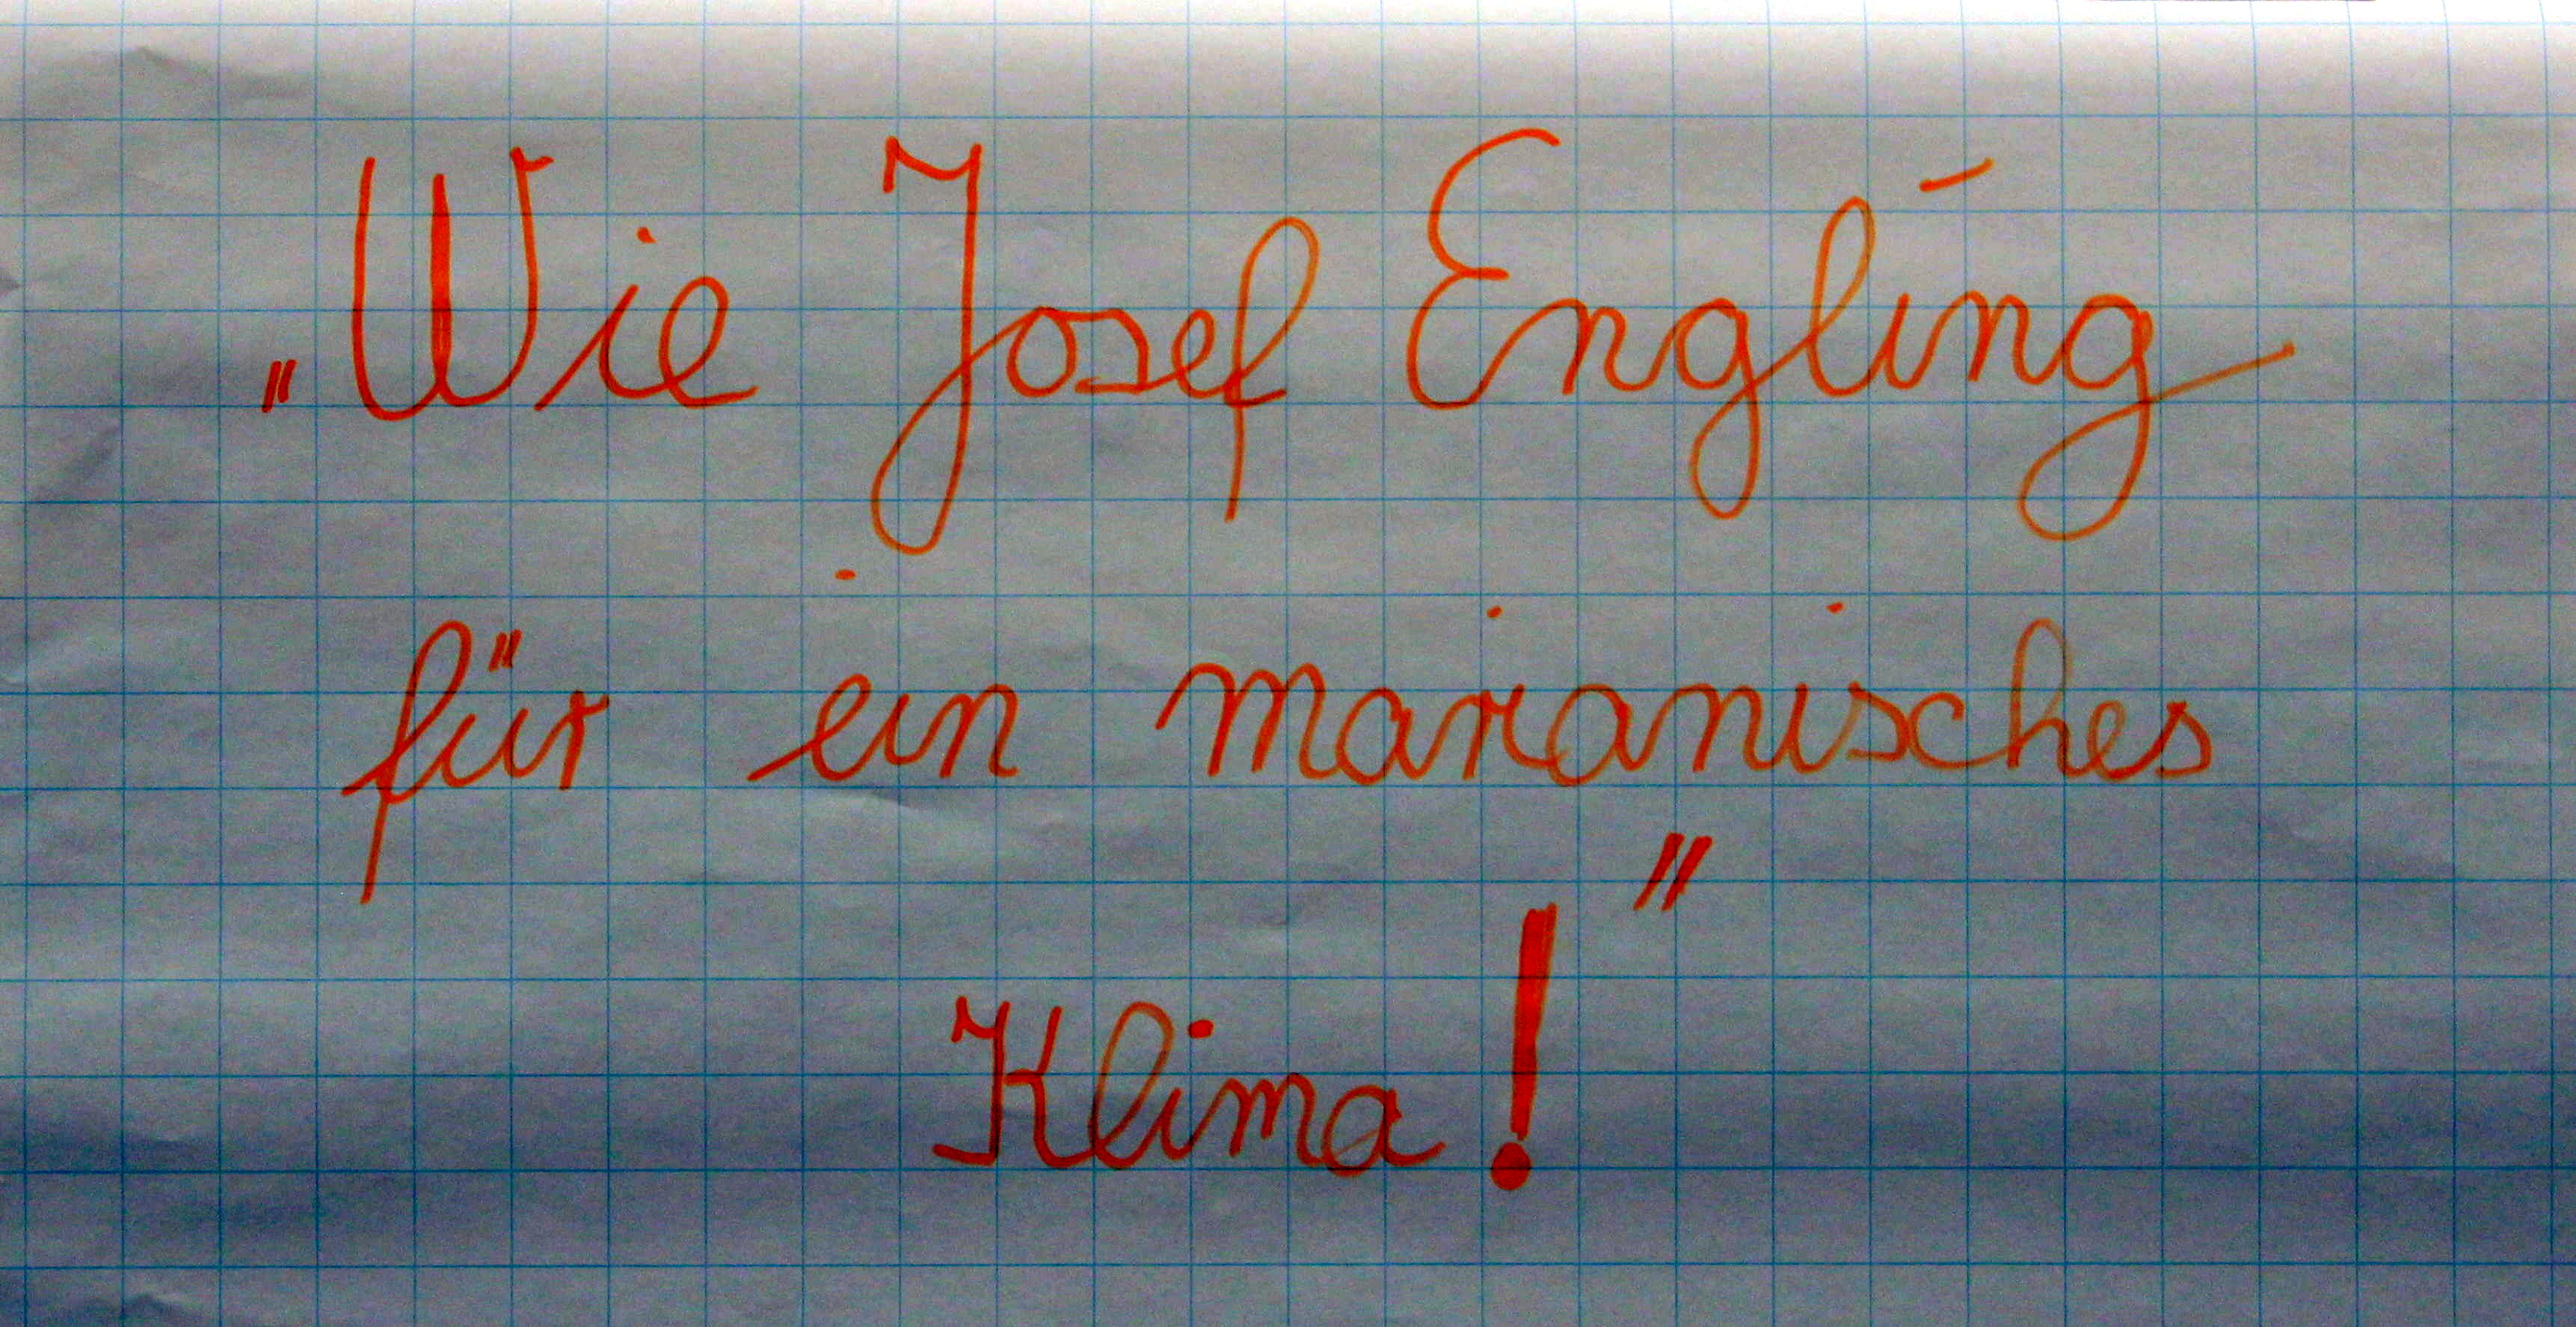 „Wie Josef Engling
für ein marianisches
Klima!"